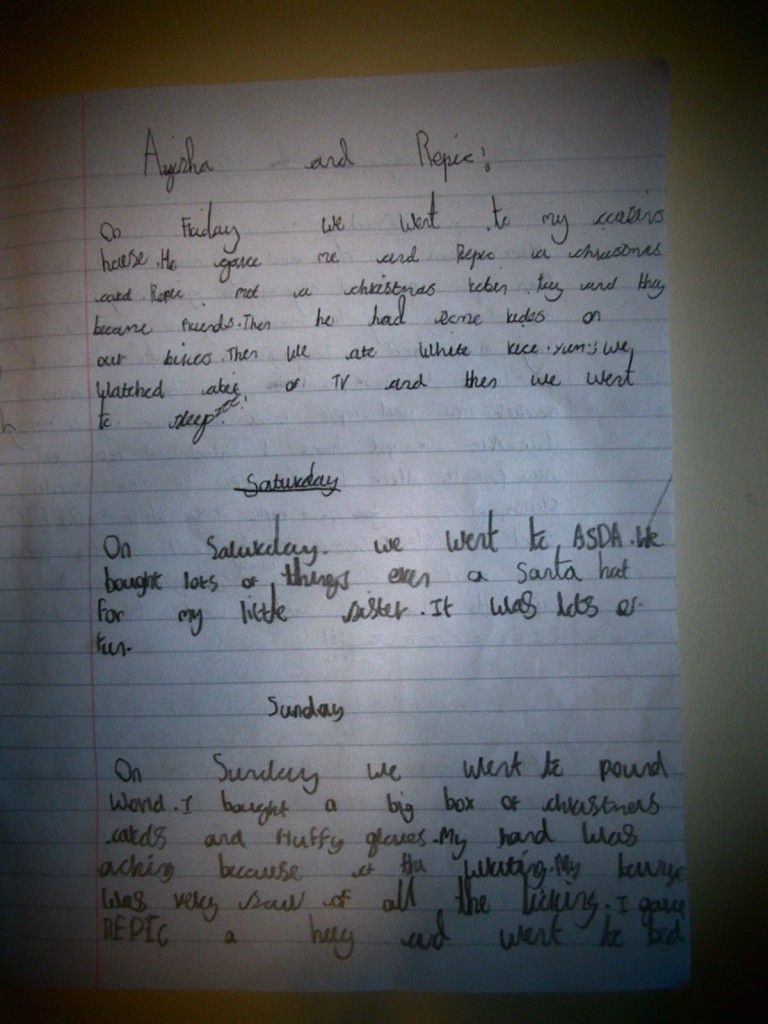 Ayisha and Repic!
On Friday we went to my
house. He gave me and Repic a christmas
card. Repic met a christmas toy and they
became friends. Then he had some rides on
our bikes. Then we ate white rice. yum! We
Watched a bit of TV and then we went
to sleep zzz!
Saturday
On Saturday. we went to ASDA. We
bought lots of things even a Santa hat
for my little sister. It was lots of
fun.
Sunday
On Sunday we went to pound
World. I bought a big box of christmas
cards and fluffy gloves. My hand was
aching because of the writing. My
was very of all the licking. I gave
REPIC a hug and went to bed